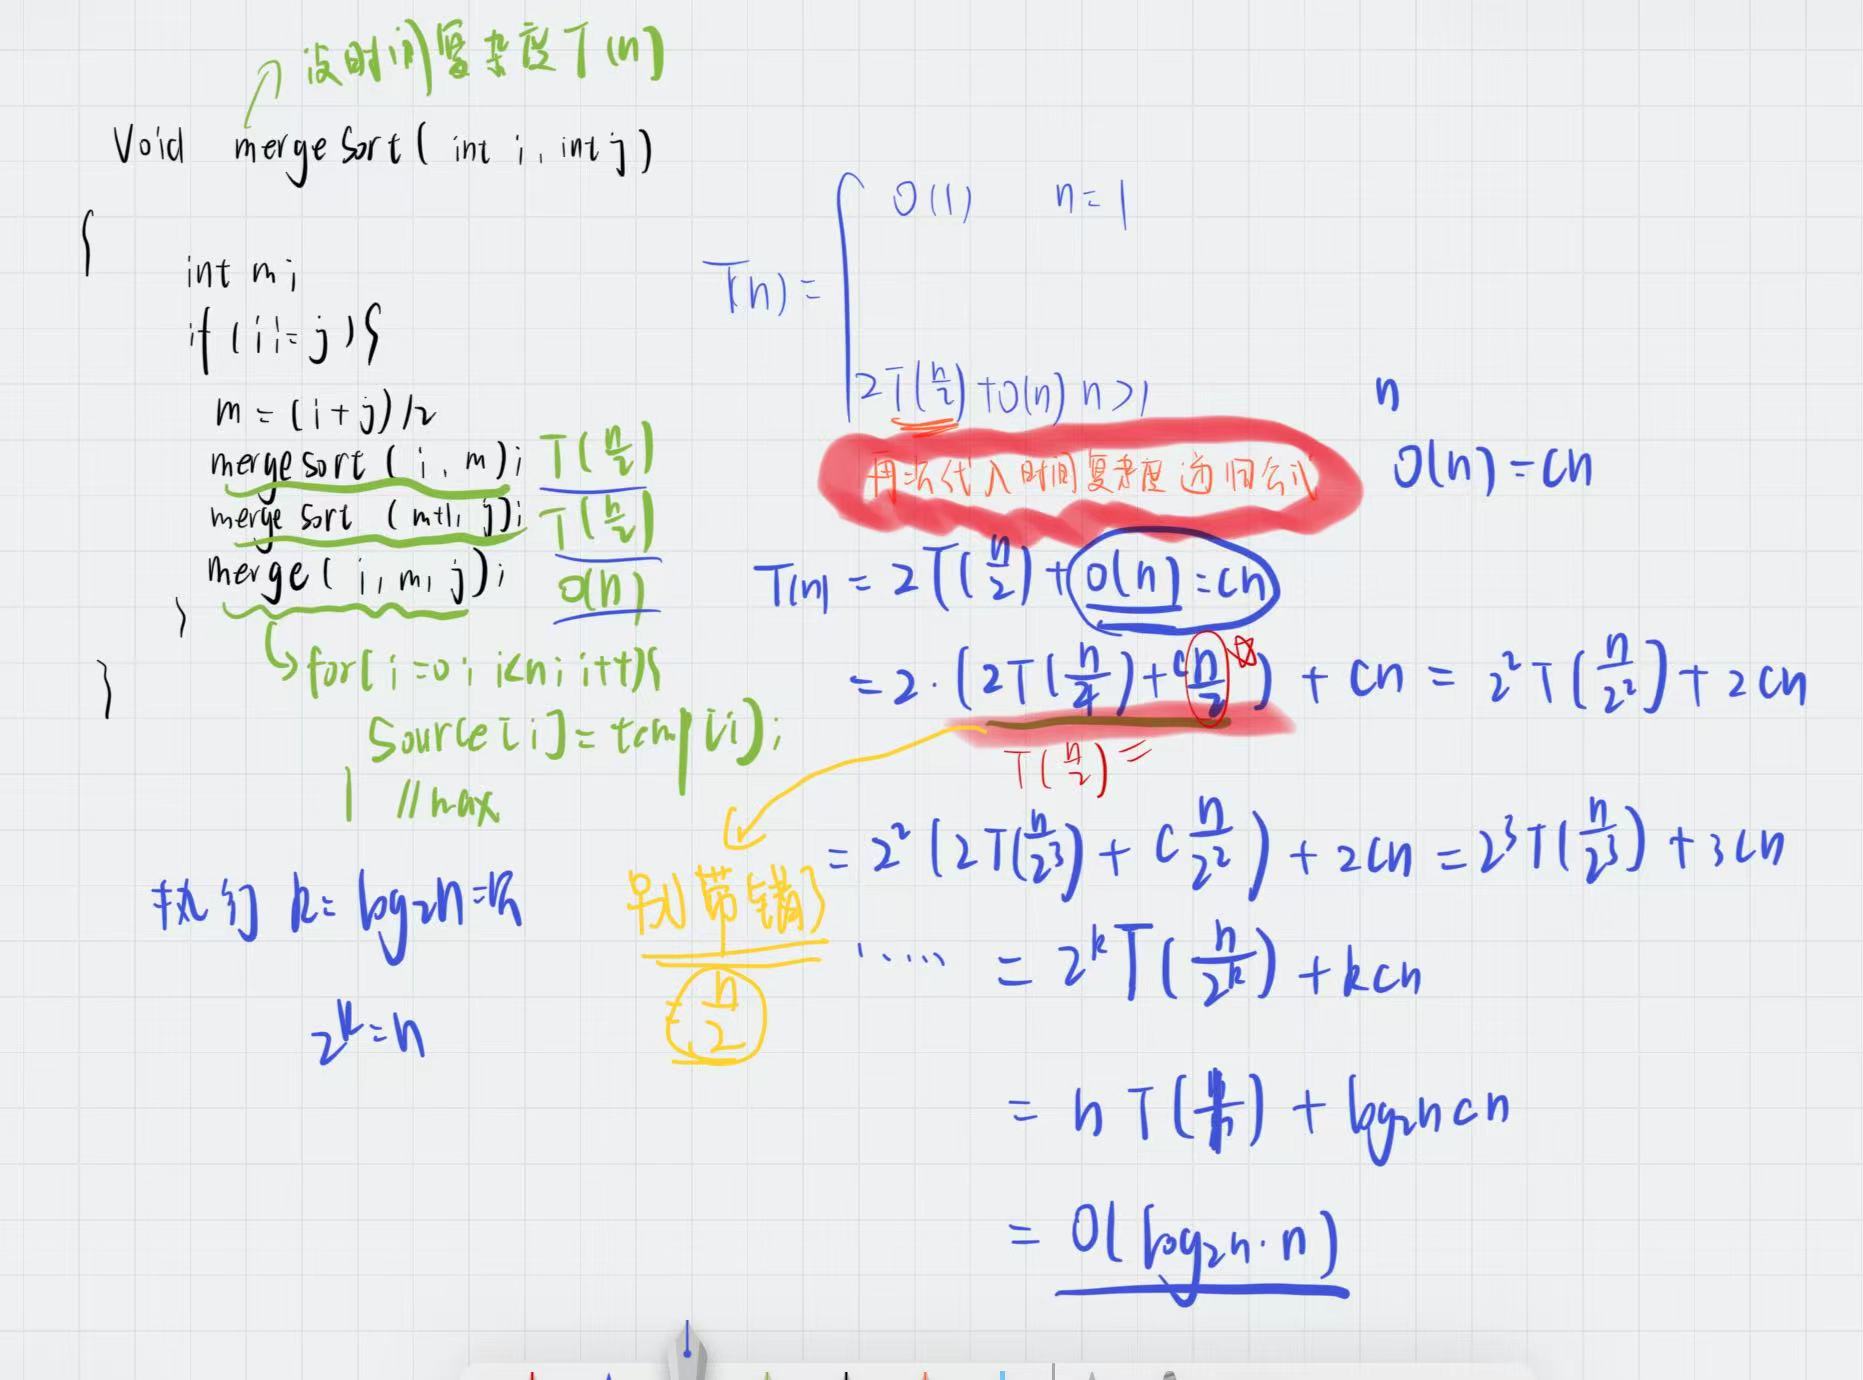 设时间复杂度 T(n)
Void mergeSort( int i, int j)
{
int m;
if (i!=j){
m = (i+j)/2
mergesort (i, m); T(n/2)
merge sort (m+1, j); T(n/2)
merge(i, m, j); O(n)
}
for(i=0; i<n; i++){
Source[i]=temp[i];
} //max
}
执行 k=log₂n=k
2^k=n
T(n) = { O(1) n=1
2T(n/2)+O(n) n>1
再次代入时间复杂度递归公式
n
O(n)=cn
T(n) = 2T(n/2)+O(n)=cn
=2·(2T(n/4)+cn/2)+cn = 2²T(n/2²)+2cn
T(n/2)=
别带错了
=n/2
=2²(2T(n/2³)+c n/2²)+2cn=2³T(n/2³)+3cn
····· =2^kT(n/2^k)+kcn
= nT(n/n)+log₂ncn
= O(log₂n·n)